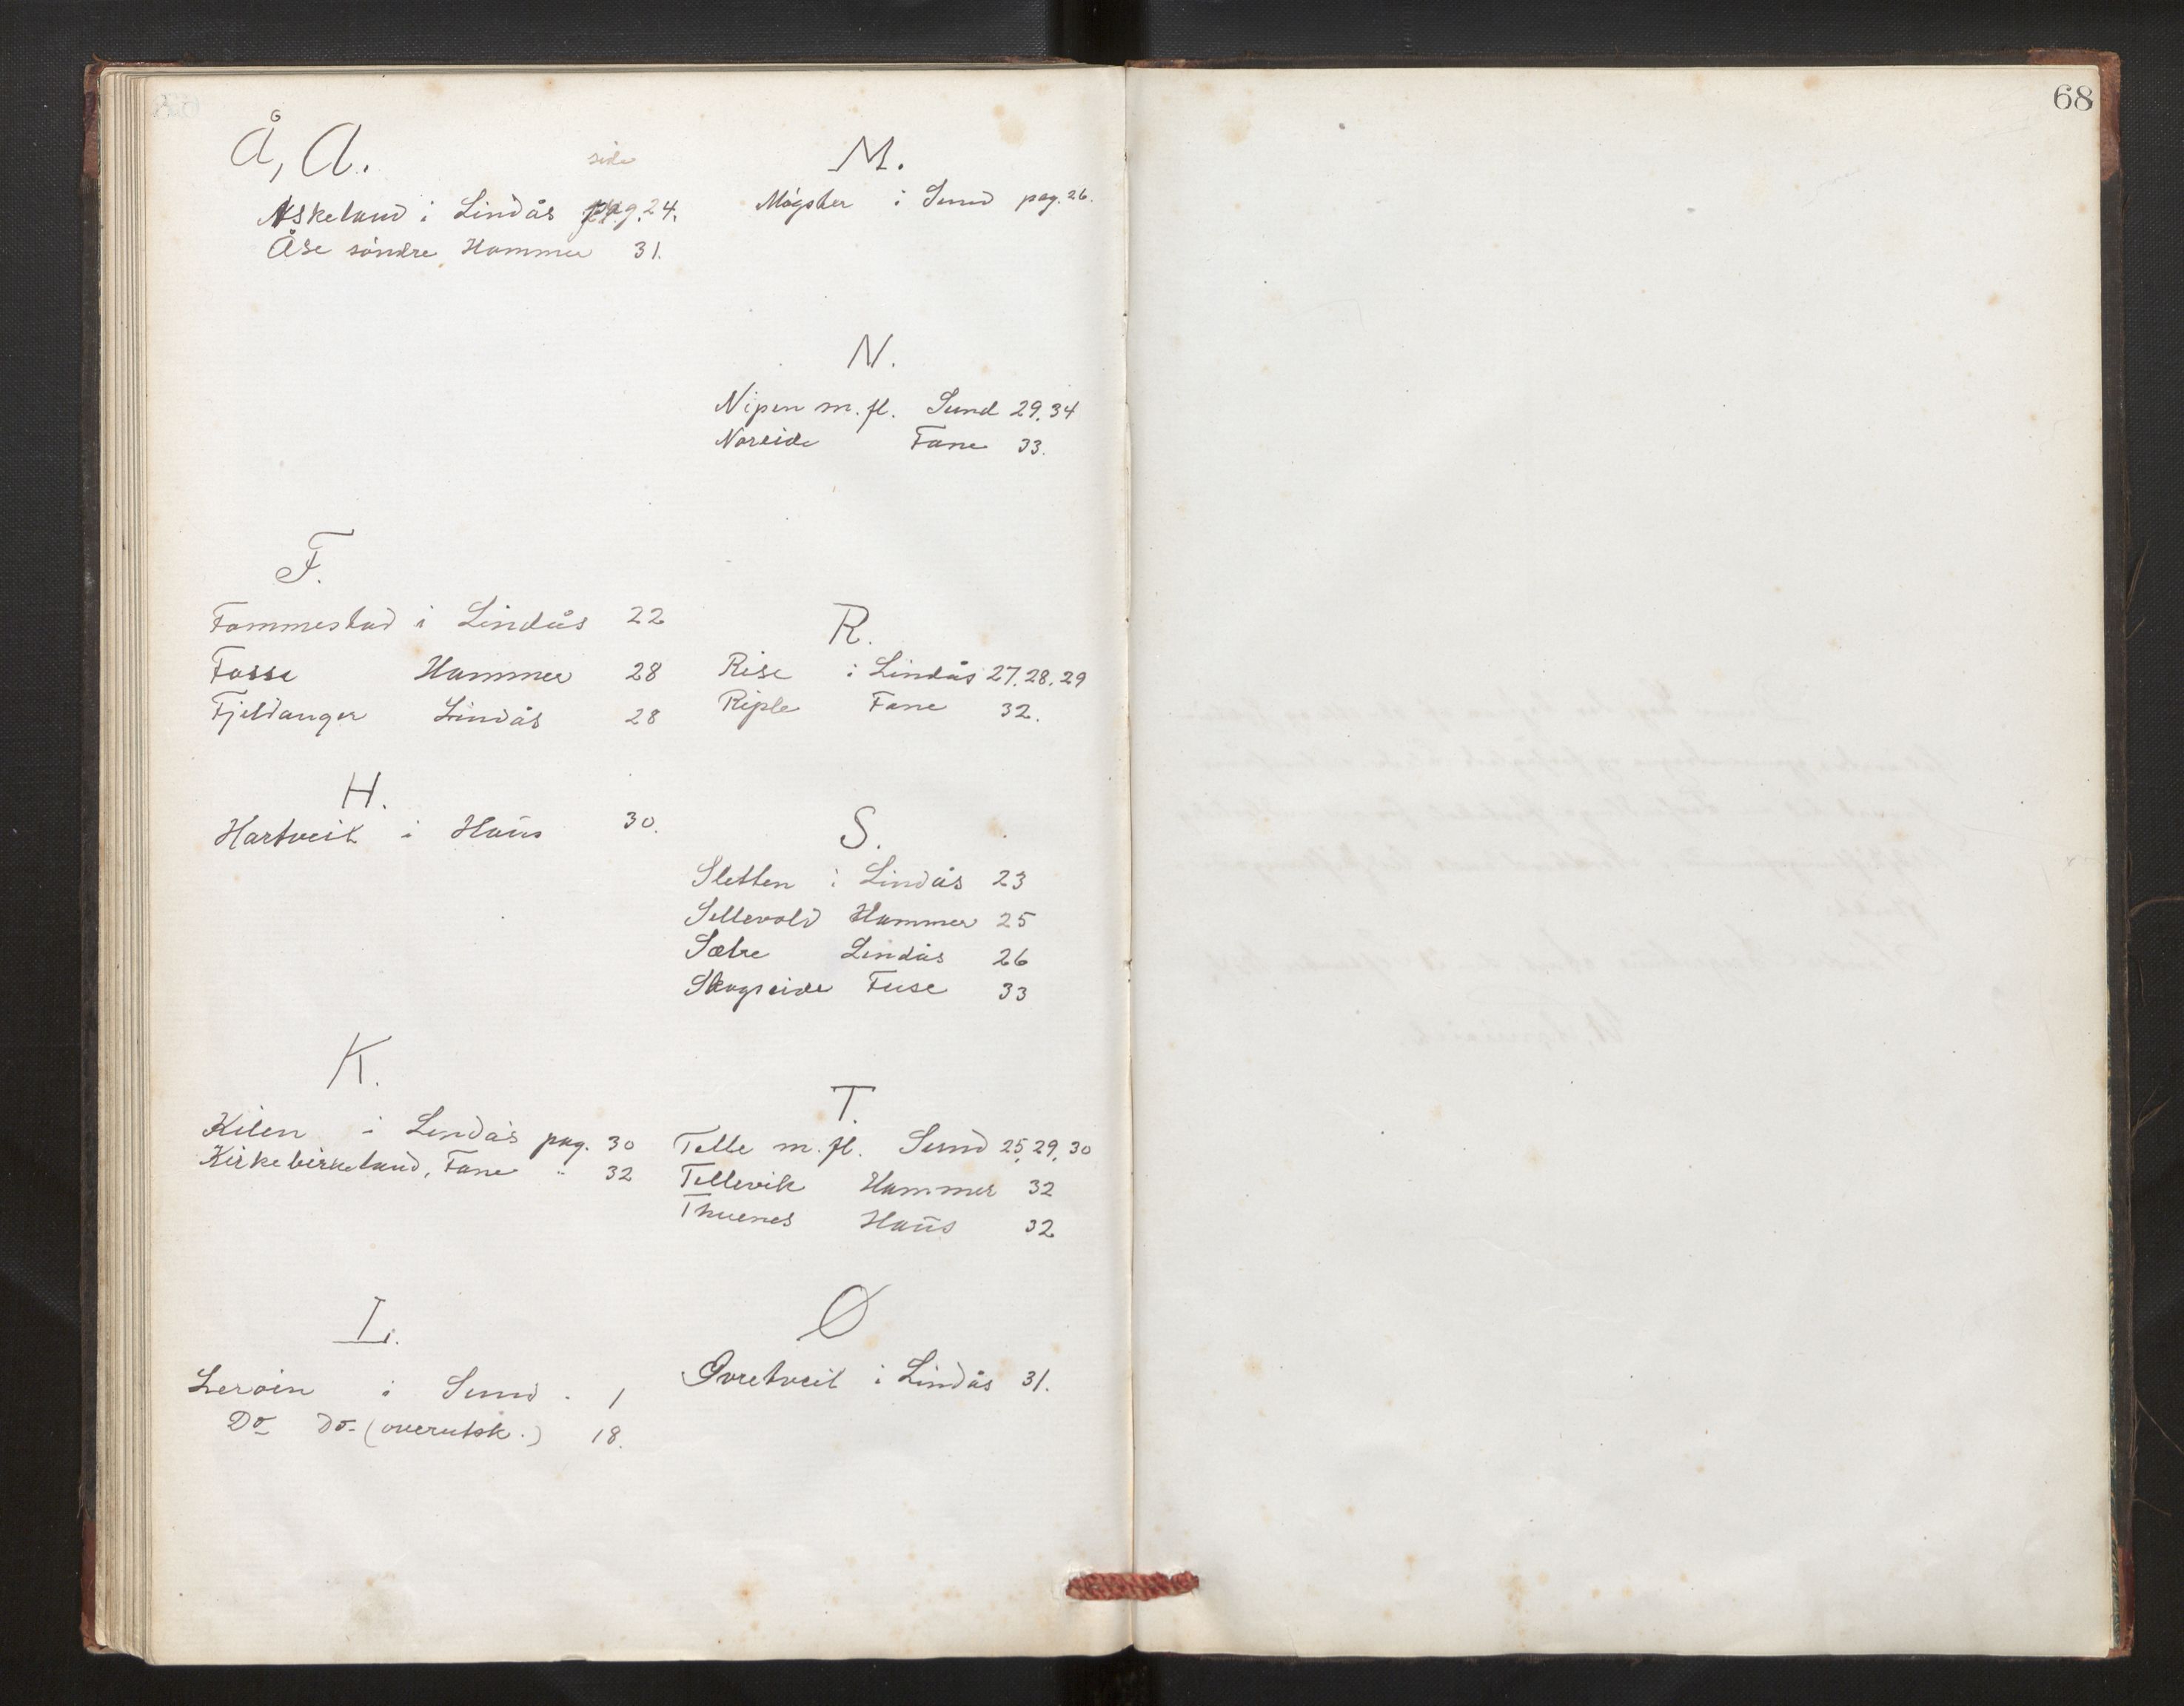 Å, A.
side
Askeland i Lindås pag. 24.
Åse söndre Hammer 31.
F.
Fammestad i Lindås 22
Fosse Hammer 28
Fjeldanger Lindås 28
H.
Hartveit i Haus 30.
K.
Kilen i Lindås pag. 30
Kirkebirkeland, Fane " 32
L.
Leroin i Sund . 1
Do Do (overutsk.) 18.
M.
Mögster i Sund pag. 26.
N.
Nipen m. fl. Sund 29. 34
Noreide Fane 33.
R.
Rise i Lindås 27. 28. 29
Riple Fane 32.
S.
Sletten i Lindås 23
Sellevold Hammer 25
Sætre Lindås 26
Skogseide Fuse 33
T.
Telle m. fl. Sund 25, 29, 30
Tellevik Hammer 32
Thuenes Haus 32
Ø
Øvretveit i Lindås 31.
68